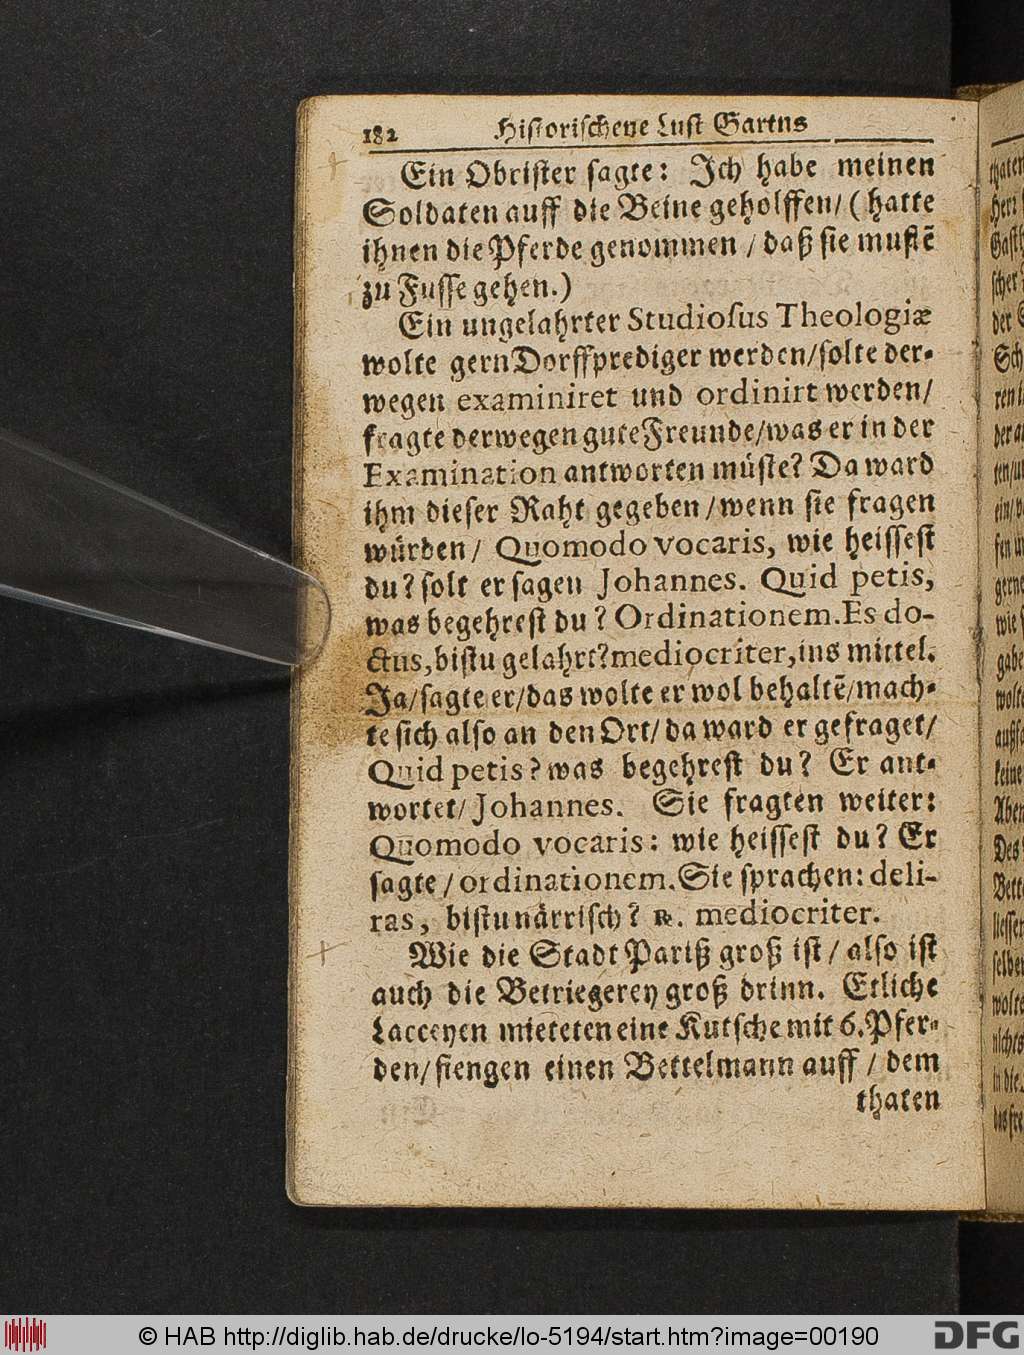 182 Historischene Lust Gartns
Ein Obrister sagte: Ich habe meinen
Soldaten auff die Beine geholffen/ (hatte
ihnen die Pferde genommen / daß sie mustẽ
zu Fusse gehen.)
Ein ungelahrter Studiosus Theologiæ
wolte gern Dorffprediger werden/solte der-
wegen examiniret und ordinirt werden/
fragte derwegen gute Freunde/was er in der
Examination antworten müste? Da ward
ihm dieser Raht gegeben/wenn sie fragen
würden/ Quomodo vocaris, wie heissest
du? solt er sagen Johannes. Quid petis,
was begehrest du? Ordinationem. Es do-
ctus, bistu gelahrt? mediocriter, ins mittel.
Ja/sagte er/das wolte er wol behaltẽ/mach-
te sich also an den Ort/ da ward er gefraget/
Quid petis? was begehrest du? Er ant-
wortet/ Johannes. Sie fragten weiter:
Quomodo vocaris: wie heissest du? Er
sagte / ordinationem. Sie sprachen: deli-
ras, bistu närrisch? ℞. mediocriter.
Wie die Stadt Pariß groß ist / also ist
auch die Betriegerey groß drinn. Etliche
Lacceyen mieteten eine Kutsche mit 6. Pfer-
den/ fiengen einen Bettelmann auff / dem
thaten
thaten
Herr
Gasth
scher
der
Sch
der
ein/
gerne
wie
gabe
wolte
keine
Aben
Des
Bett
selber
wolte
© HAB http://diglib.hab.de/drucke/lo-5194/start.htm?image=00190
DFG